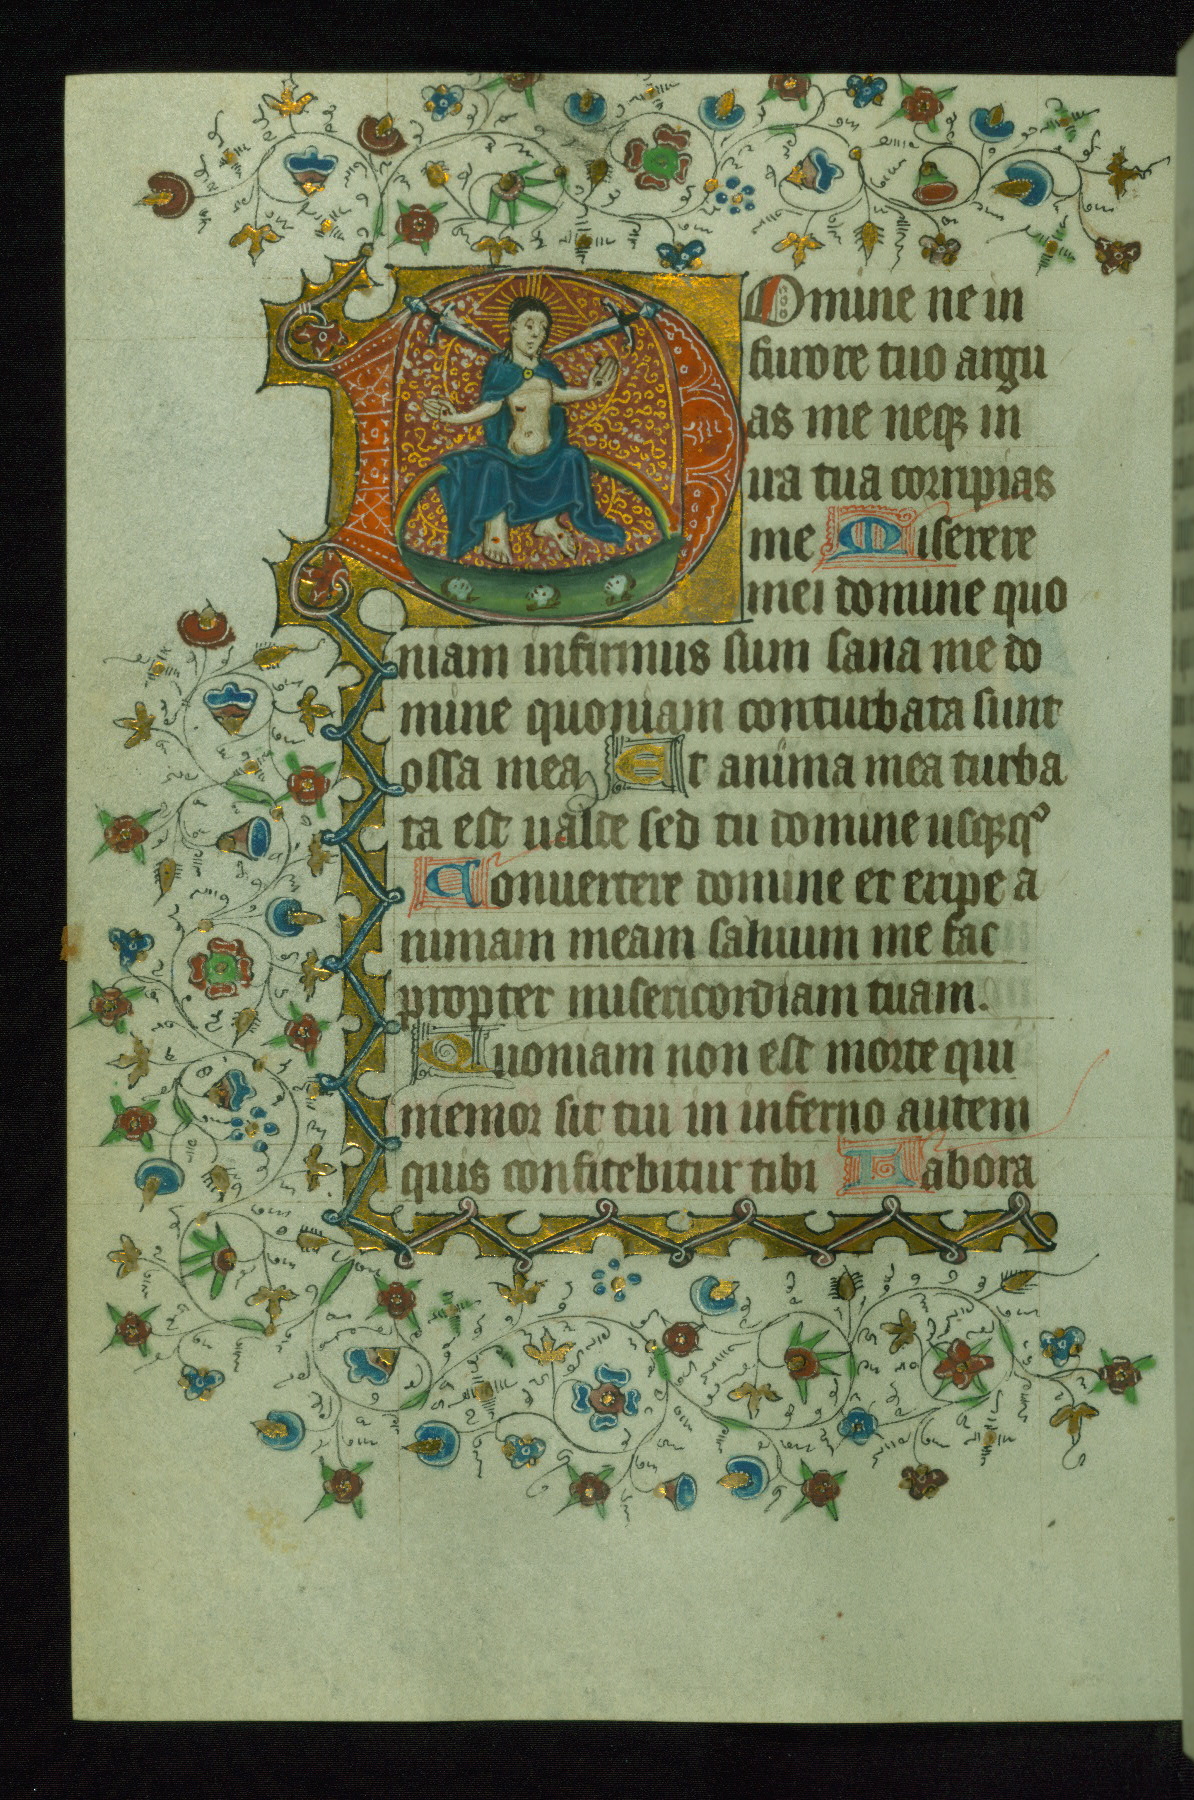 Domine ne in
furore tuo argu
as me neqꝫ in
ira tua corripias
me Miserere
mei domine quo
niam infirmus sum sana me do
mine quoniam conturbata sunt
ossa mea Et anima mea turba
ta est ualde sed tu domine usqꝫqͦ
Conuertere domine et eripe a
nimam meam saluum me fac
propter misericordiam tuam.
Quoniam non est in morte qui
memor sit tui in inferno autem
quis confitebitur tibi Labora